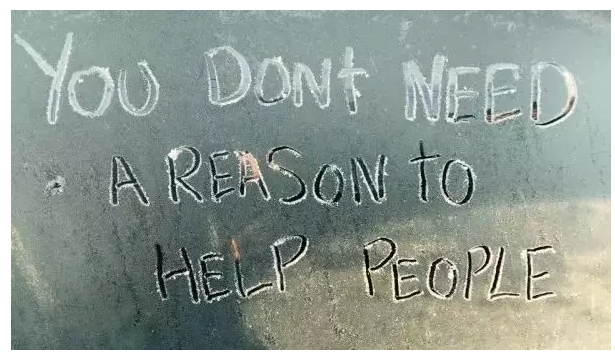 YOU DONt NEED
A REASON tO
HELP PEOPLE